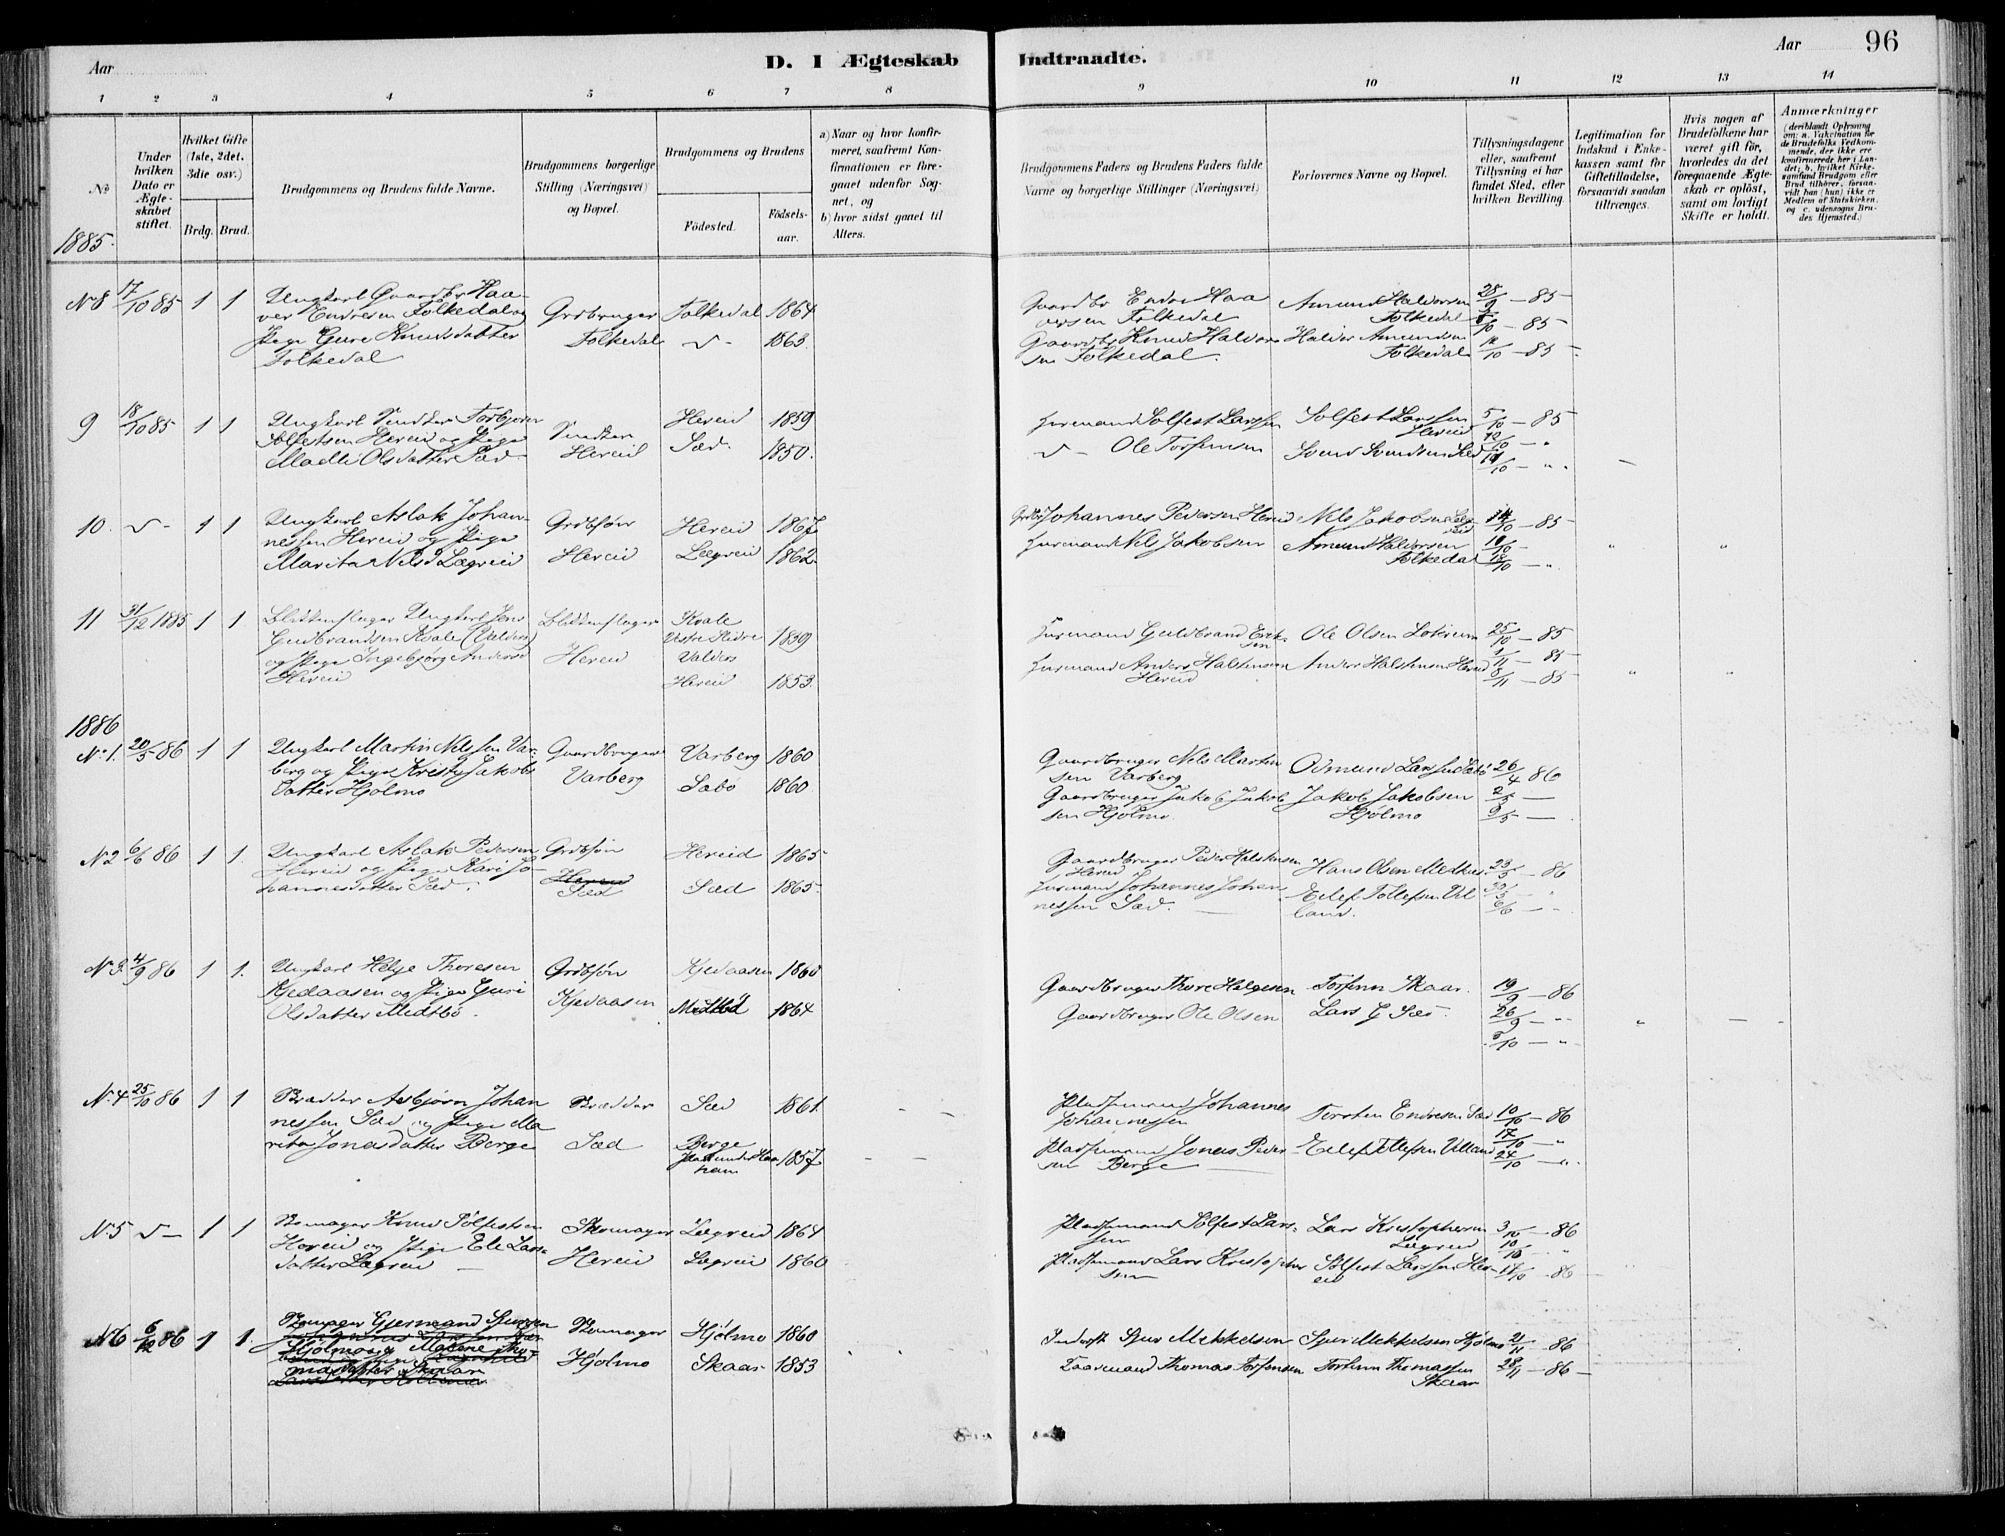 Aar
D. I Ægteskab Indtraadte.
Aar 96
1 2 3 4 5 6 7 8 9 10 11 12 13 14
No
Under hvilken Dato er Ægteskabet stiftet.
Hvilket Gifte (1ste, 2det, 3die osv.)
Brdg. Brud.
Brudgommens og Brudens fulde Navne.
Brudgommens borgerlige Stilling (Næringsvei) og Bopæl.
Brudgommens og Brudens
Fødested.
Fødselsaar.
a) Naar og hvor konfirmeret, saafremt Konfirmationen er foregaaet udenfor Sognet, og
b) hvor sidst gaaet til Alters.
Brudgommens Faders og Brudens Faders fulde Navne og borgerlige Stillinger (Næringsvei)
Forlovernes Navne og Bopæl.
Tillysningsdagene eller, saafremt Tillysning ei har fundet Sted, efter hvilken Bevilling.
Legitimation for Indskud i Enkekassen samt for Giftetilladelse, forsaavidt saadan tiltrænges.
Hvis nogen af Brudefolkene har været gift før, hvorledes da det foregaaende Ægteskab er opløst, samt om lovligt Skifte er holdt.
Anmærkninger
(deriblandt Oplysning om: a. Vakcination for de Brudefolks Vedkommende, der ikke ere konfirmerede her i Landet; b. hvilket Kirkesamfund Brudgom eller Brud tilhører, forsaavidt han (hun) ikke er Medlem af Statskirken, og c. udensogns Brudes Hjemsted.)
1885.
No 8 17/10 85 1 1
Ungkarl Gaardbr Haa-
ver Endresen Folkedal og
Pige Gure Knudsdatter
Folkedal
Grdbruger
Folkedal
Folkedal 1864
1863
Gaardbr Endre Haa
versen Folkedal
Gaardbr Knud Haldor
sen Folkedal.
Amund Haldorsen
Folkedal
Haldor Amundsen
Folkedal
28/9 - 85
/10 - 85
/10 - 85
9 18/10 85 1 1
Ungkarl Torbjørn
Solfestsen Hereid og Pige
Madli Olsdatter Sæd
Hereid
Hereid 1859
Sæd 1850.
Husmand Solfest Larssen
Ole Torfinsen
Solfest Larssen
Hereid
Svend Svendsen Sæd
5/10 - 85
12/10 - "
/10 - "
10. 1 1
Ungkarl Aslak Johan-
nessen Hereid og Pige
Marita Nelsd Lægreid
Grdbsøn
Hereid
Hereid 1867
Lægreid 1862
Grdbr Johannes Pedersen Hereid
Husmand Nels Jakobsen
Nels Jakobsen
Amund Haldorsen
Folkedal
/10 - 85
/10 -
/10 - "
11 31/12 1885 1 1
Blikkenslager Ungkarl Jens
Gudbrandsen Kvale (Valders)
og Pige Ingebjørg Andersd
Hereid
Blikkenslager
Hereid
Kvale
Vestre Slidre 1859
Valders
Hereid 1853
Husmand Guldbrand Erik-
sen
Husmand Anders Halstensen
Hereid
Ole Olsen Lokreim
Anders Halstensen Hereid
25/10 - 85
1/11 - 85
8/11 - 85
1886
No 1. 20/5 86 1 1
Ungkarl Martin Nelssen Var-
berg og Pige Kristi Jakobs
datter Hjølmo
Gaardbruger
Varberg
Varberg 1860
Sabø 1860
Gaardbruger Nels Martin
sen Varberg
Gaardbruger Jakob Jakob
sen Hjølmo.
Odmund Larssen Sabø
Jakob Jakobsen
Hjølmo
26/4 86
2/5 -
9/5 -
No 2 6/6 86 1 1.
Ungkarl Aslak Pedersen
Hereid og Pige Kari Jo-
hannesdatter Sæd.
Grdbsøn
Hereid
Sæd
Hereid 1865
Sæd 1865
Gaardbruger Peder Halstensen
Hereid
Husmand Johannes Johan
nessen Sæd.
Hans Olsen Medhus
Eilef Tollefsen Vil
land.
23/5 - 86
30/5 - "
6/6 - "
No 3. 4/9 86 1 1.
Ungkarl Helje Thoresen
Kjedaasen og Pige Guri
Olsdatter Medtbø.
Grdbsøn
Kjedaasen
Kjedaasen 1860
Medtbø 1864
Gaardbruger Thore Helgesen
Gaardbruger Ole Olsen
Torfinn Skaar.
Lars G Sæd.
19/9 - 86
26/9 - "
3/10 - "
No 4 25/10 86 1 1
Asbjørn Johan
nessen Sæd og Pige Ma
rita Jonasdatter Berge
Sæd
Sæd 1861.
Berge
1857
Pladsmand Johannes
Johannessen
Pladsmand Jonas Peder
sen Berge
Torsten Endresen Sæd
Eilef Tollefsen Villand
10/10 - 86
17/10 - "
24/10 - "
No 5 1 1
Skomager Knud Solfestsen
Hereid og Pige Eli Lars-
datter Lægreid
Skomager
Hereid
Lægreid 1864
Lægreid 1860
Pladsmand Solfest Lars-
sen
Pladsmand Lars Kristopher
sen
Lars Kristophersen
Lægreid
Solfest Larssen Her-
eid
3/10 - 86
10/10 "
17/10 - 86
No 6 6/12 86 1 1.
Skomager Gjermund Sjursen
Hjølmo og Malene Tho-
masdatter Skaar
Skomager
Hjølmo
Hjølmo 1860
Skaar 1853
Inderst Sjur Mekkelsen
Thomas Torfinsen
Sjur Mekkelsen Hjølmo
Torfinn Thomassen
Skaar
21/11 - 86
28/11 - 86